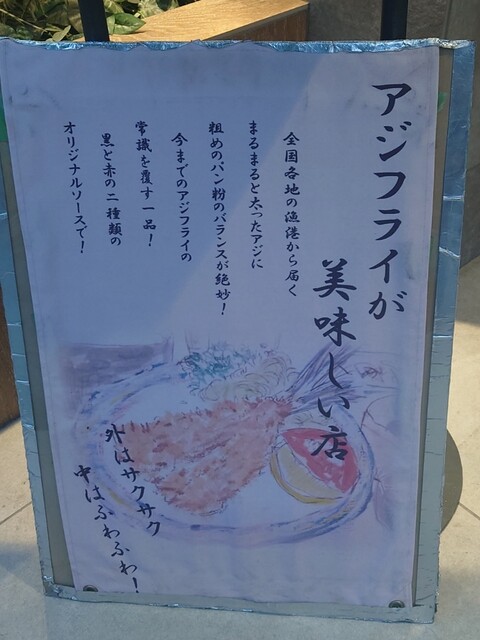 アジフライが
美味しい店
全国各地の漁港から届く
まるまると太ったアジに
粗めのパン粉のバランスが絶妙！
今までのアジフライの
常識を覆す一品！
黒と赤の二種類の
オリジナルソースで！
外はサクサク
中はふわふわ！